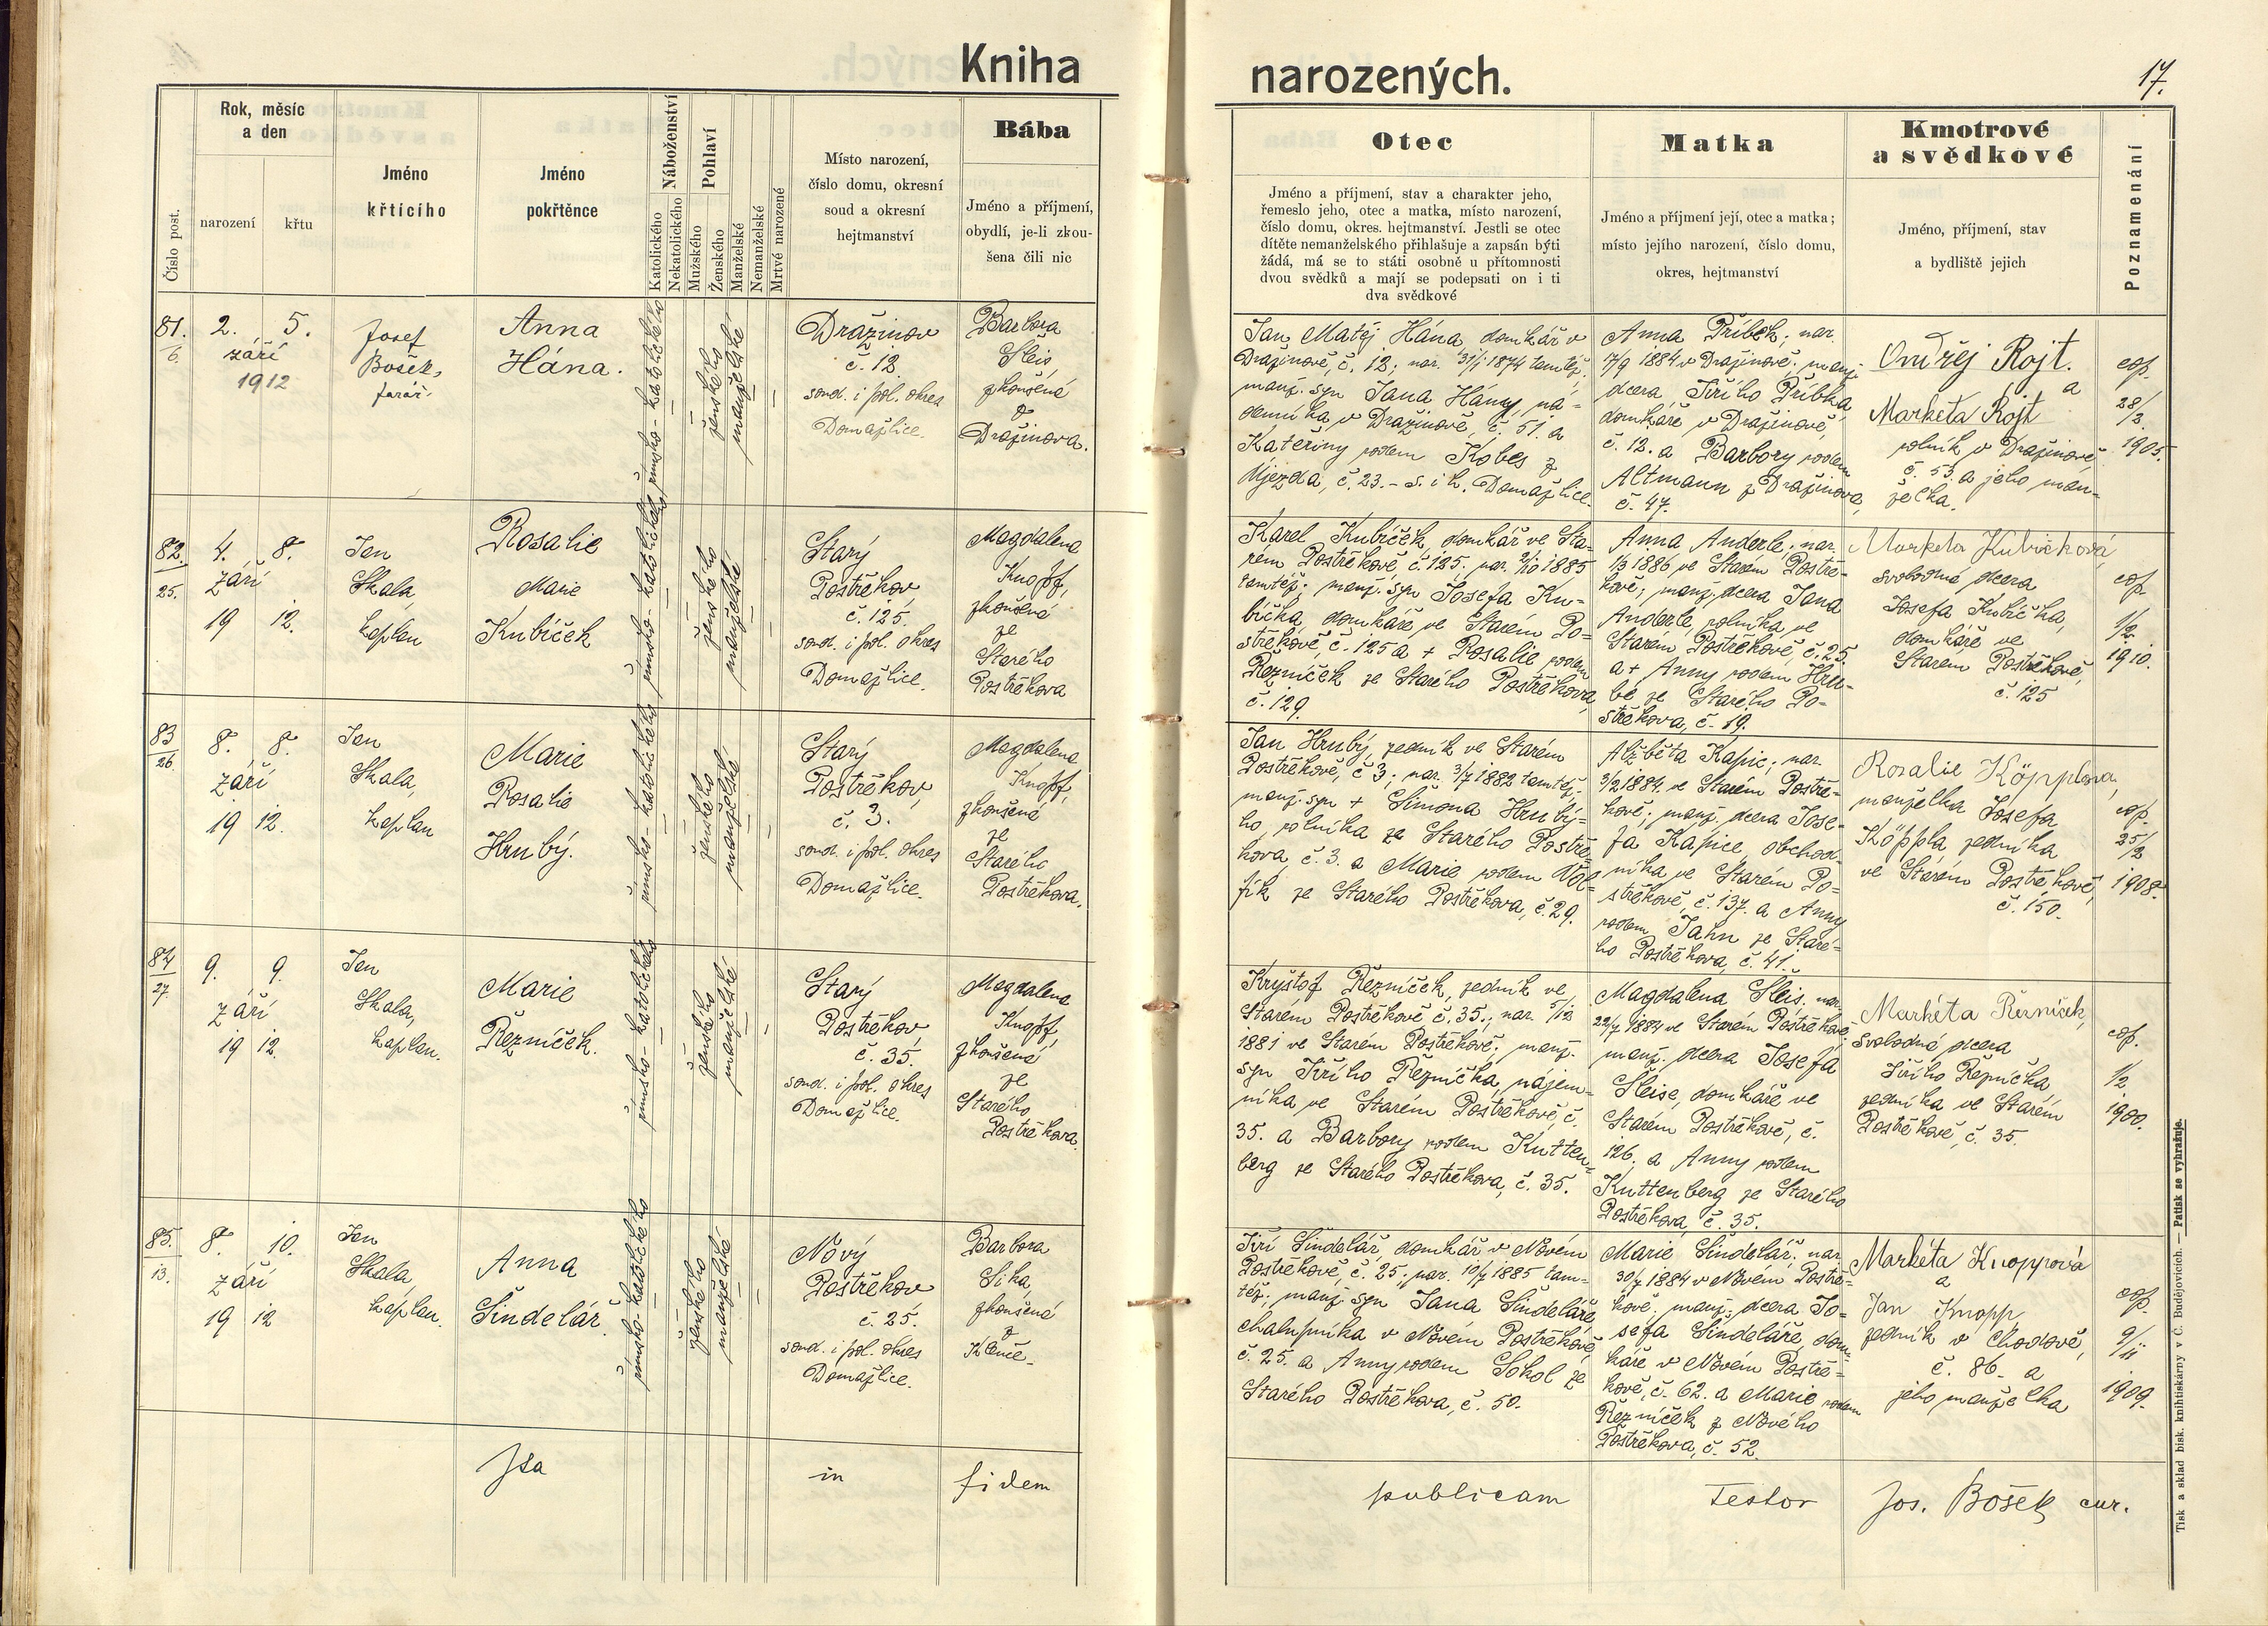 Kniha
narozených.
17.
Číslo post.
Rok, měsíc
a den
narození
křtu
Jméno
křtícího
Jméno
pokřtěnce
Náboženství
Katolického
Nekatolického
Pohlaví
Mužského
Ženského
Manželské
Nemanželské
Mrtvě narozené
Místo narození,
číslo domu, okresní
soud a okresní
hejtmanství
Bába
Jméno a příjmení,
obydlí, je-li zkou-
šena čili nic
Otec
Jméno a příjmení, stav a charakter jeho,
řemeslo jeho, otec a matka, místo narození,
číslo domu, okres. hejtmanství. Jestli se otec
dítěte nemanželského přihlašuje a zapsán býti
žádá, má se to státi osobně u přítomnosti
dvou svědků a mají se podepsati on i ti
dva svědkové
Matka
Jméno a příjmení její, otec a matka;
místo jejího narození, číslo domu,
okres, hejtmanství
Kmotrové
a svědkové
Jméno, příjmení, stav
a bydliště jejich
Poznamenání
81.
6.
2. 5.
září
1912
Josef
Bošek,
farář.
Anna
Hána.
římsko-katolického
ženského
manželské
Dražinov
č. 12.
soud. i pol. okres
Domažlice.
Barbora
Šleis,
zkoušená
z
Dražinova.
Jan Matěj Hána, domkář v
Dražinově, č. 12; nar. 31/1 1874 tamtéž;
manž. syn Jana Hány, ná-
denníka v Dražinově, č. 51. a
Kateřiny rodem Kobes z
Újezda, č. 23. - s. i h. Domažlice.
Anna Příbek; nar.
17/9 1884 v Dražinově; manž.
dcera Jiřího Příbka,
domkáře v Dražinově,
č. 12. a Barbory rodem
Altmann z Dražinova,
č. 47.
Ondřej Rojt.
a
Markéta Rojt
rolník v Dražinově
č. 53. a jeho man-
želka.
cop.
28/
2.
1905.
82.
25.
4. 8.
září
19 12.
Jan
Skala,
kaplan
Rosalie
Marie
Kubíček
římsko-katolického
ženského
manželské
Starý
Postřekov,
č. 125.
soud. i pol. okres
Domažlice.
Magdalena
Knopf,
zkoušená
ze
Starého
Postřekova
Karel Kubíček, domkář ve Sta-
rém Postřekově, č. 125. nar. 2/10 1885
tamtéž; manž. syn Josefa Ku-
bíčka, domkáře ve Starém Po-
střekově, č. 125 a + Rosalie rodem
Řezníček ze Starého Postřekova,
č. 129.
Anna Anderle; nar.
1/3 1886 ve Starém Postře-
kově; manž. dcera Jana
Anderle, rolníka ve
Starém Postřekově, č. 25.
a + Anny rodem Hru-
bé ze Starého Po-
střekova, č. 19.
Marketa Kubíčková,
svobodná dcera
Josefa Kubíčka,
domkáře ve
Starém Postřekově,
č. 125
cop.
1/
2.
1910.
83
26.
8. 8.
září
19 12.
Jan
Skala,
kaplan
Marie
Rosalie
Hrubý.
římsko-katolického
ženského
manželské
Starý
Postřekov,
č. 3.
soud. i pol. okres
Domažlice.
Magdalena
Knopf,
zkoušená
ze
Starého
Postřekova.
Jan Hrubý, zedník ve Starém
Postřekově, č 3; nar. 3/7 1882 tamtéž;
manž. syn + Šimona Hrubý-
ho, rolníka ze Starého Postře-
kova, č. 3. a Marie rodem Vol-
fík ze Starého Postřekova, č. 29.
Alžběta Kapic; nar.
3/2 1884. ve Starém Postře-
kově; manž. dcera Jose-
fa Kapice, obchod-
níka ve Starém Po-
střekově, č. 137. a Anny
rodem Jahn ze Staré-
ho Postřekova, č. 41.
Rosalie Köpplova,
manželka Josefa
Köppla zedníka
ve Starém Postřekově,
č. 150.
cop.
25/
2
1908.
84
27
9. 9.
září
19 12.
Jan
Skala,
kaplan.
Marie
Řezníček.
římsko-katolického
ženského
manželské
Starý
Postřekov,
č. 35.
soud. i pol. okres
Domažlice.
Magdalena
Knopf,
zkoušená
ze
Starého
Postřekova
Kryštof Řezníček, zedník ve
Starém Postřekově č. 35.; nar. 5/12
1881 ve Starém Postřekově; manž.
syn Jiřího Řezníčka, nájem-
níka ve Starém Postřekově, č.
35. a Barbory rodem Kutten-
berg ze Starého Postřekova, č. 35.
Magdalena Šleis, nar.
22/7 1884 ve Starém Postřekově;
manž. dcera Josefa
Šleise, domkáře ve
Starém Postřekově, č.
126. a Anny rodem
Kuttenberg ze Starého
Postřekova č. 35.
Markéta Řezníček,
svobodná dcera
Jiřího Řezníčka
zedníka ve Starém
Postřekově, č. 35.
cop.
1/2
1900.
85.
13.
8. 10.
září
19 12
Jan
Skala,
kaplan.
Anna
Šindelář.
římsko-katolického
ženského
manželské
Nový
Postřekov
č. 25.
soud. i pol. okres
Domažlice.
Barbora
Sika,
zkoušená
z
Klenče.
Jiří Šindelář, domkář v Novém
Postřekově, č. 25.; nar. 10/7 1885 tam-
též; manž. syn Jana Šindeláře
chalupníka v Novém Postřekově,
č. 25. a Anny rodem Sokol ze
Starého Postřekova, č. 50.
Marie Šindelář; nar.
30/7 1884 v Novém Postře-
kově; manž. dcera Jo-
sefa Šindeláře, dom-
káře v Novém Postře-
kově, č. 62. a Marie rodem
Řezníček z Nového
Postřekova, č. 52.
Markéta Knoppová
a
Jan Knopp
zedník v Chodově,
č. 86. a
jeho manželka
cop.
9/
11
1909.
Ita in fidem publicam testor Jos. Bošek cur.
Tisk a sklad bisk. knihtiskárny v Č. Budějovicích. — Patisk se vyhražuje.